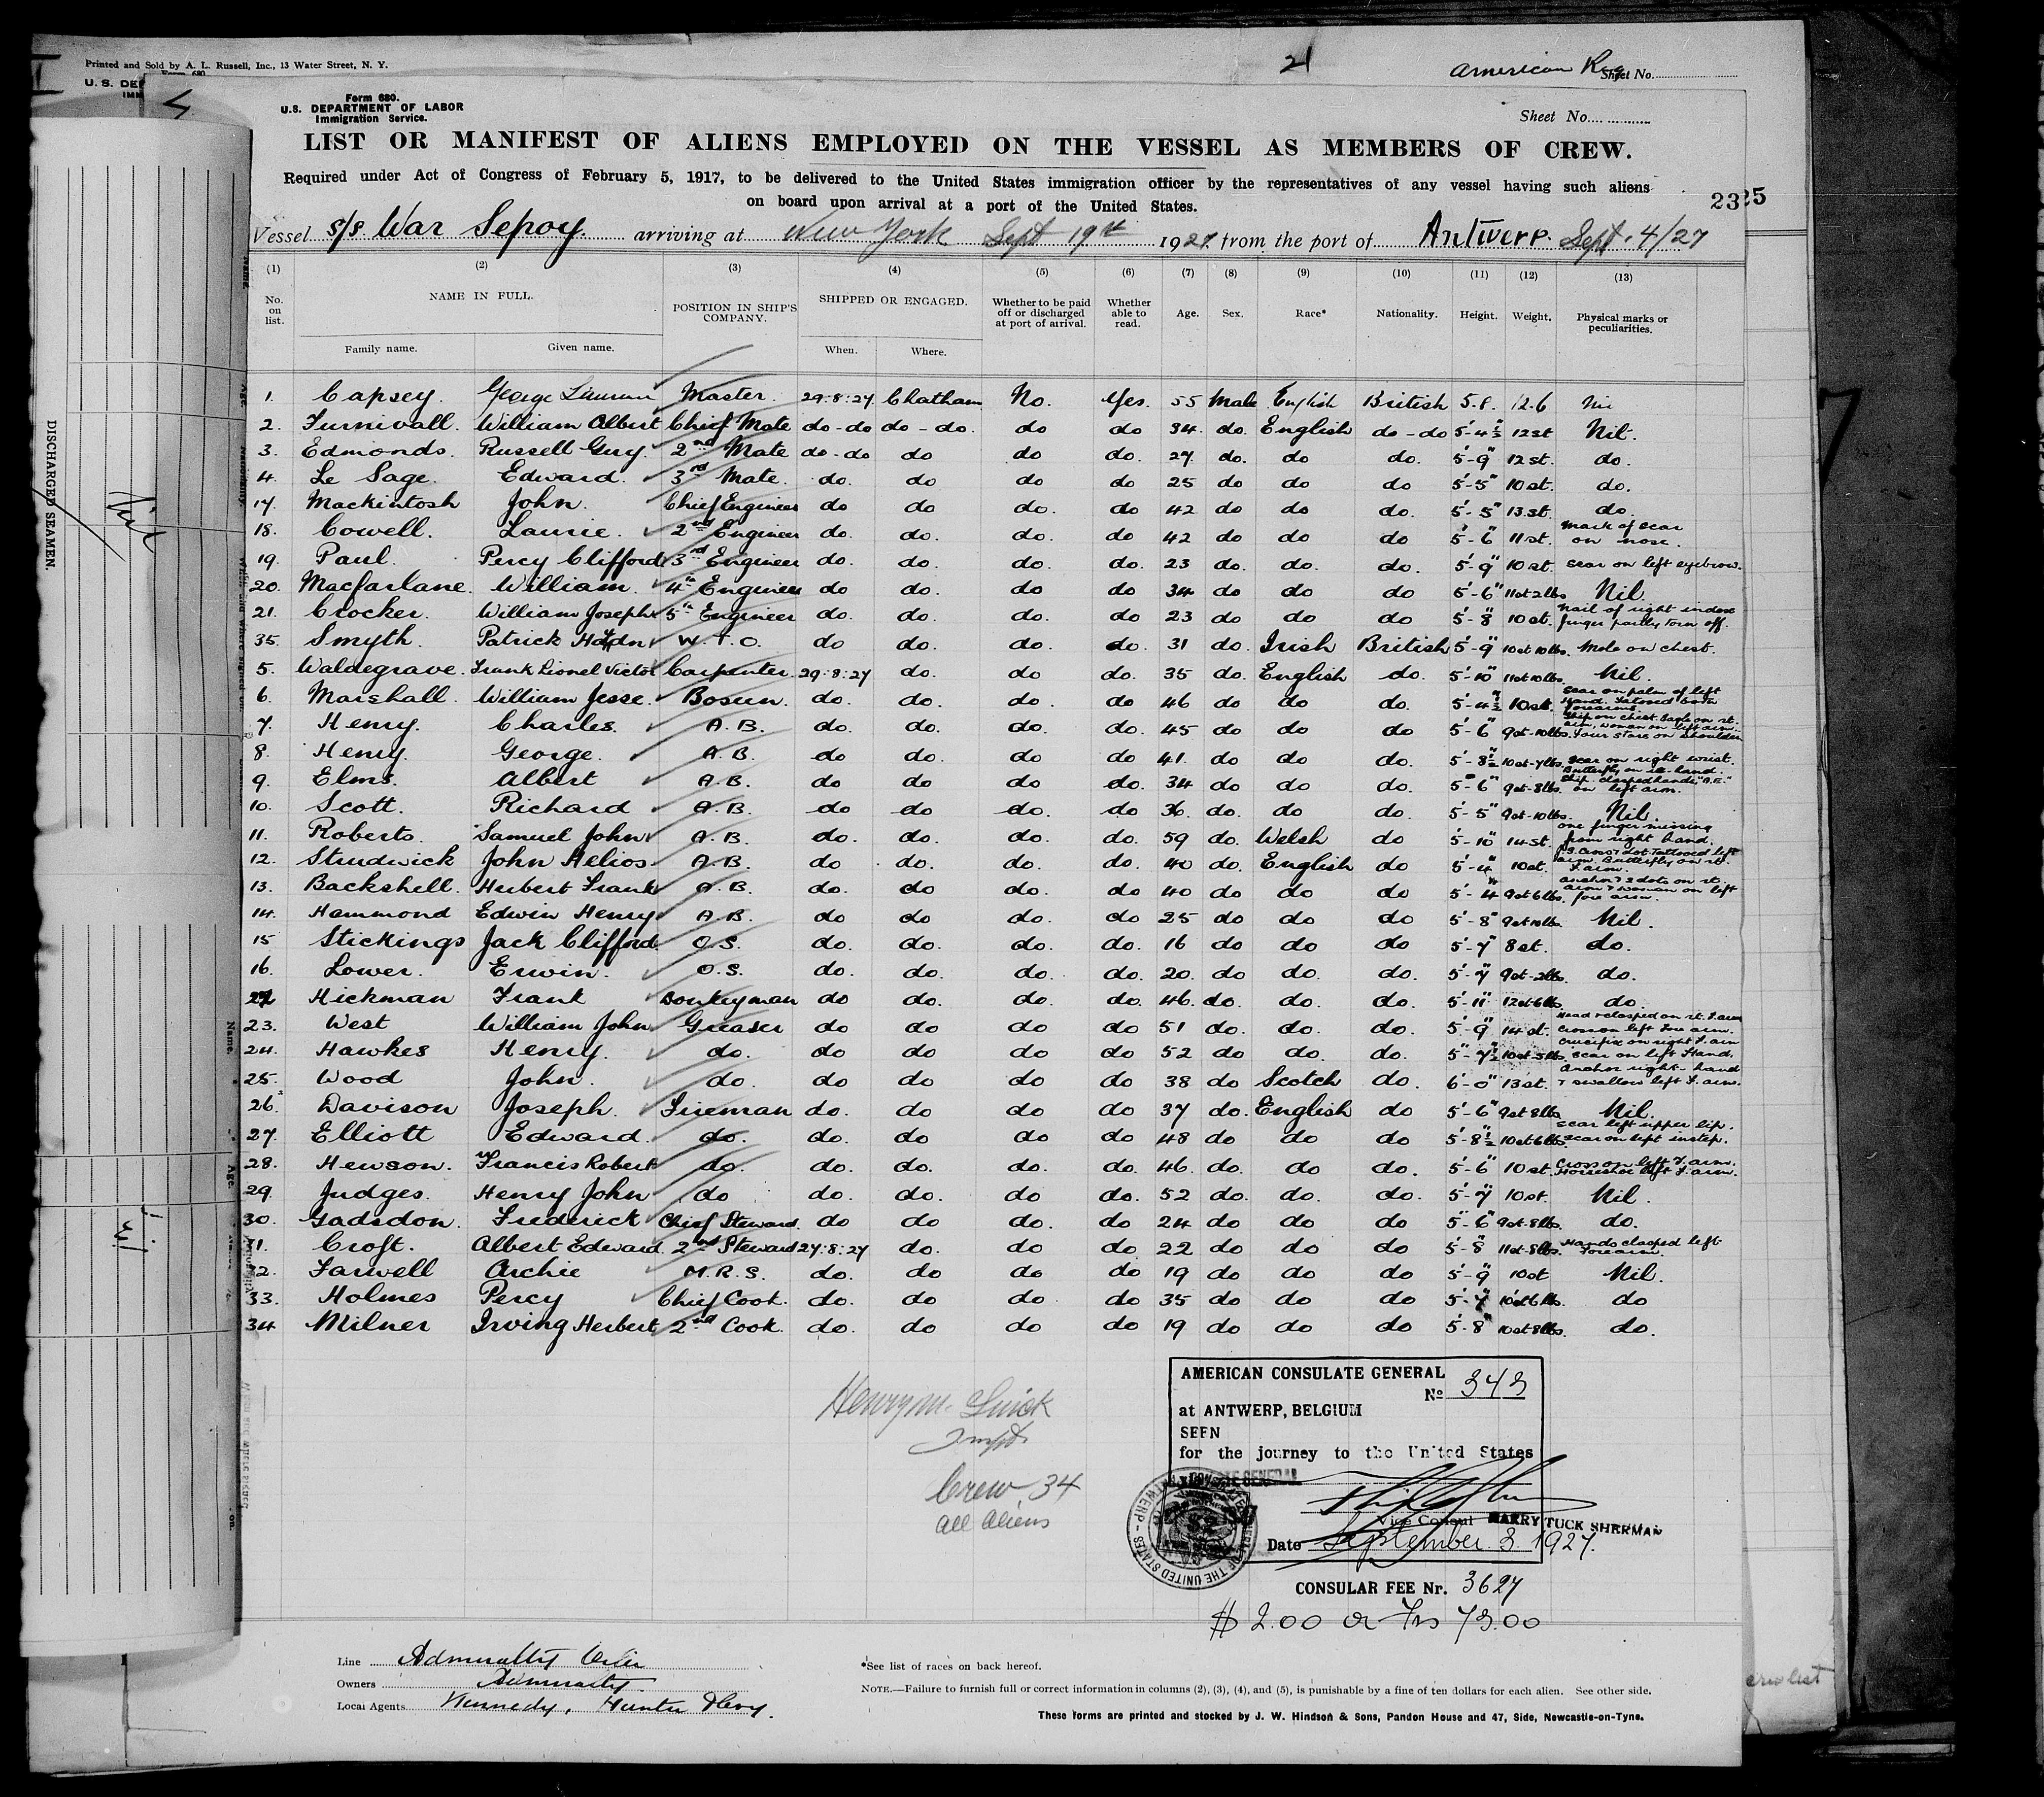 Printed and Sold by A. L. Russell, Inc., 13 Water Street, N. Y.
21
American
Sheet No.
U. S. DE
Form 680.
U.S. DEPARTMENT OF LABOR
Immigration Service.
Sheet No.
LIST OR MANIFEST OF ALIENS EMPLOYED ON THE VESSEL AS MEMBERS OF CREW.
Required under Act of Congress of February 5, 1917, to be delivered to the United States immigration officer by the representatives of any vessel having such aliens
on board upon arrival at a port of the United States.
23
25
Vessel S/S War Sepoy. arriving at New York Sept 19th 1927 from the port of Antwerp. Sept. 4/27
(1) (2) (3) (4) (5) (6) (7) (8) (9) (10) (11) (12) (13)
No. on list. NAME IN FULL. POSITION IN SHIP'S COMPANY. SHIPPED OR ENGAGED. Whether to be paid off or discharged at port of arrival. Whether able to read. Age. Sex. Race* Nationality. Height. Weight. Physical marks or peculiarities.
Family name. Given name. When. Where.
1. Capsey. George Master. 29:8:27 Chatham No. Yes. 55 Male English British 5.8. 12.6 Nil
2. Furnivall. William Albert Chief Mate do-do do-do. do do 34. do. English do-do 5'-4½" 12st Nil.
3. Edmonds. Russell Guy. 2nd Mate do-do do do do. 27. do. do do. 5'-9" 12st. do.
4. Le Sage. Edward. 3rd Mate. do. do do do 25 do do do 5'-5" 10st. do.
17. Mackintosh John. Chief Engineer do do do. do 42 do do do. 5'-5" 13.st. do.
18. Cowell. Laurie. 2nd Engineer do. do. do. do 42 do do do. 5'-6" 11st. Mark of scar on nose.
19. Paul. Percy Clifford 3rd Engineer do. do. do. do. 23 do. do. do. 5'-9" 10st. Scar on left eyebrow.
20. Macfarlane. William. 4th Engineer do do do do 34 do do do 5'-6" 11st 2lbs Nil.
21. Crocker. William Joseph 5th Engineer do do. do. do 23 do do do 5'-8 10st. Nail of right index finger partly torn off.
35. Smyth. Patrick W.T.O. do do. do. do. 31 do. Irish British 5'-9" 10st 10lbs. Mole on chest.
5. Waldegrave. Frank Lionel Victor Carpenter. 29:8:27 do. do do. 35 do. English do. 5'-10" 11st 10lbs. Nil.
6. Marshall. William Jesse. Bosun. do. do. do. do 46 do do do. 5'-4½" 10st. Scar on palm of left Hand. Tatooed both forearms.
7. Henry. Charles. A.B. do. do. do. do. 45 do do do 5'-6" 9st-10lbs. Ship on chest. Eagle on rt. arm, woman on left arm. Four stars on shoulder
8. Henry. George. A.B. do do. do do 41. do do do. 5'-8½" 10st-7lbs. Scar on right wrist.
9. Elms. Albert A.B. do do do do. 34 do do do. 5'-6" 9st-8lbs. Butterfly on rt. hand. Ship. clasped hands, "A.E." on left arm.
10. Scott. Richard A.B. do do do. do 36. do. do do. 5'-5" 9st-10lbs. Nil.
11. Roberts. Samuel John A.B. do. do. do. do. 59 do. Welsh do 5'-10" 14st. One finger missing from right hand.
12. Strudwick John Helios. A.B. do do. do. do. 40 do. English do 5'-4" 10st. Cross & dot Tattooed left arm. Butterfly on rt. F. arm.
13. Backshell. Herbert Frank A.B. do. do do. do 40 do do do 5'-4 9st 6lbs. anchor & 2 dots on rt. arm & woman on left fore arm.
14. Hammond Edwin Henry A.B. do do do. do 25 do do do 5'-8" 9st 10lbs. Nil.
15 Stickings Jack Clifford. O.S. do. do. do. do. 16 do do do 5'-7" 8st. do.
16. Lower. Erwin. O.S. do. do. do. do. 20. do do. do. 5'-7" 9st-2lbs. do.
22 Hickman Frank Donkeyman do do. do. do. 46. do. do. do. 5'-11" 12st 6lbs. do.
23. West William John Greaser do do do do 51 do. do. do. 5'-9" 14st. Head & clasped on rt. F. arm Cross on left Fore arm.
24. Hawkes Henry. do. do do do do 52 do do. do. 5'-7½" 10st-5lbs. Crucifix on right F. arm Scar on left Hand.
25. Wood John. do. do do do do 38 do Scotch do. 6'-0" 13st. Anchor right-hand & swallow left F. arm.
26. Davison Joseph. Fireman do. do do do 37 do. English do 5'-6" 9st 8lbs Nil.
27. Elliott Edward. do. do. do do do 48 do do do 5'-8½ 10st 6lbs Scar left upper lip. Scar on left instep.
28. Hewson. Francis Robert do. do. do. do. do. 46. do. do do. 5'-6" 10st Cross on left F. arm. Horseshoe left F. arm.
29. Judges. Henry John do do. do. do do. 52 do. do. do. 5'-7" 10st. Nil.
30. Gadsdon. Frederick Chief Steward. do do do. do 24 do do do 5'-6" 9st-8lbs. do.
31. Croft. Albert Edward. 2nd Steward 27:8:27 do. do. do. 22 do. do do 5'-8" 11st-8lbs. Hands clasped left Forearm.
32. Farwell Archie M.R.S. do. do do do 19 do do do 5'-9" 10st Nil.
33. Holmes Percy Chief Cook. do. do do do 35 do do do 5'-7" 10st 6lbs. do
34 Milner Irving Herbert 2nd Cook. do. do do do 19 do do do 5'-8" 10st-8lbs. do.
DISCHARGED SEAMEN.
Nil
Henry M.
Inspt.
Crew 34
all aliens
AMERICAN CONSULATE GENERAL
No 343
at ANTWERP, BELGIUM
SEEN
for the journey to the United States
Vice Consul HARRY TUCK SHERMAN
Date September 3. 1927.
CONSULAR FEE Nr. 3627
$ 2.00 or Frs 73.00
Line Admiralty
Owners Admiralty
Local Agents Kennedy, Hunter
*See list of races on back hereof.
NOTE.—Failure to furnish full or correct information in columns (2), (3), (4), and (5), is punishable by a fine of ten dollars for each alien. See other side.
These forms are printed and stocked by J. W. Hindson & Sons, Pandon House and 47, Side, Newcastle-on-Tyne.
crew list